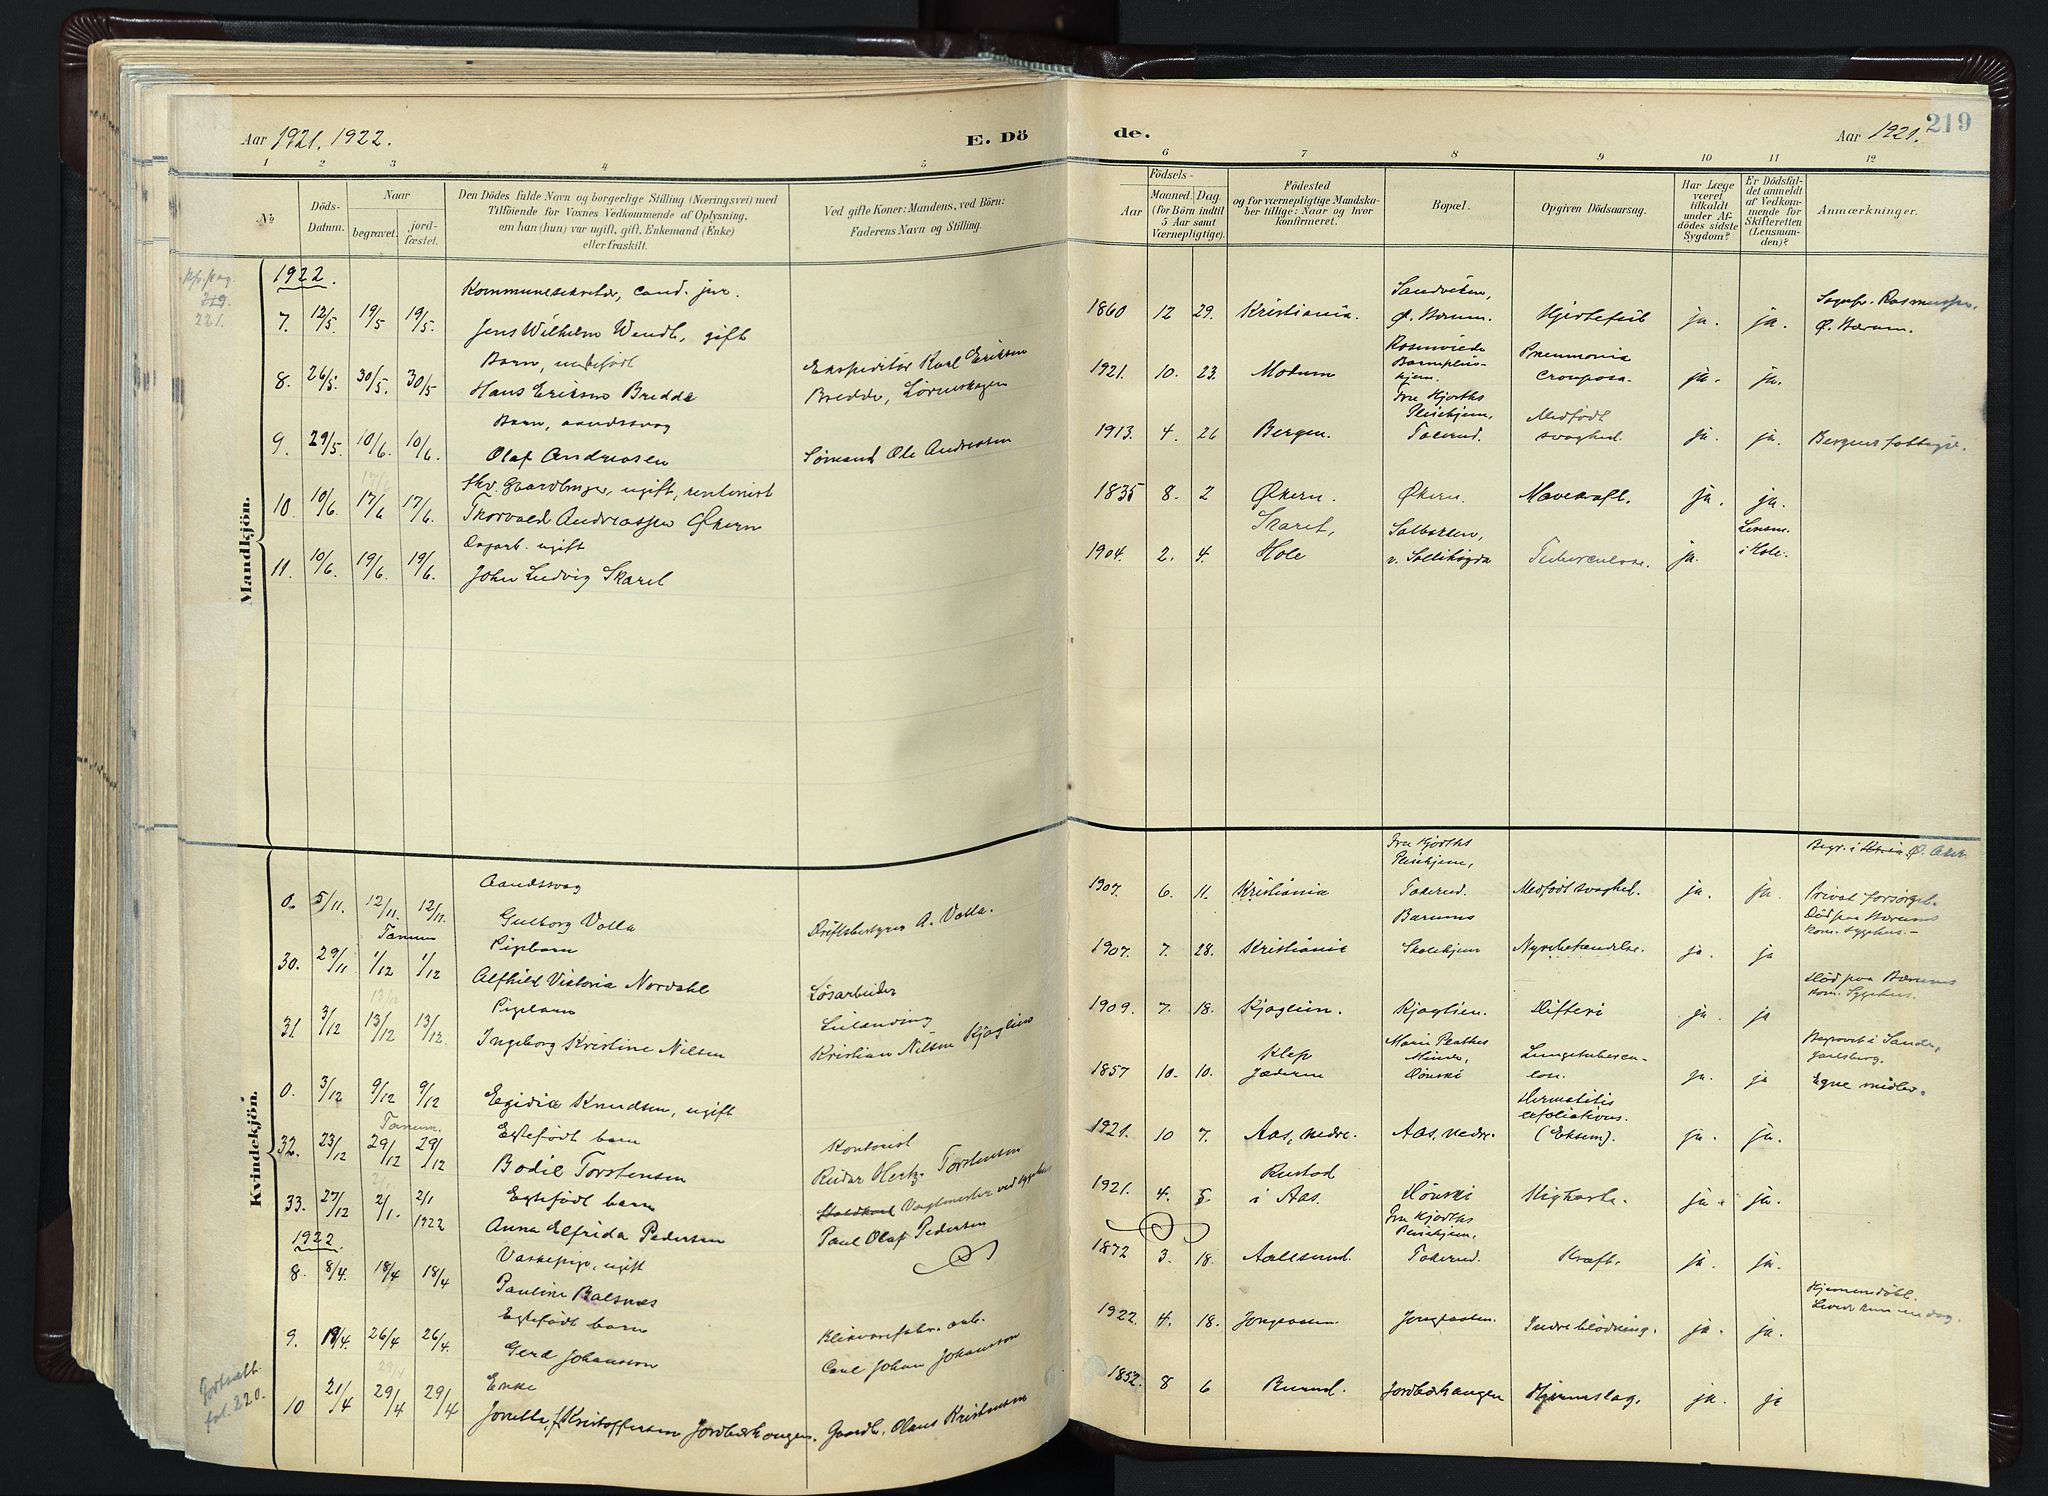 Aar 1921, 1922.
E. Dö
de.
Aar 1921.
219
1 2 3 4 5 6 7 8 9 10 11 12
No
Döds-
Datum.
Naar
begravet.
jord-
fæstet.
Den Dödes fulde Navn og borgerlige Stilling (Næringsvei) med
Tilföiende for Voxnes Vedkommende af Oplysning,
om han (hun) var ugift, gift, Enkemand (Enke)
eller fraskilt.
Ved gifte Koner: Mandens, ved Börn:
Faderens Navn og Stilling.
Födsels-
Aar
Maaned.
Dag.
(for Börn indtil
5 Aar samt
Værnepligtige).
Födested
og for værnepligtige Mandska-
ber tillige: Naar og hvor
konfirmeret.
Bopæl.
Opgiven Dödsaarsag.
Har Læge
været
tilkaldt
under Af-
dödes sidste
Sygdom?
Er Dödsfal-
det anmeldt
af Vedkom-
mende for
Skifteretten
(Lensmun-
den)?
Anmærkninger.
Mandkjön.
221.
1922.
Kommunesekretær, cand. jur.
7. 12/5. 19/5 19/5. Jens Wilhelm Wendt, gift
1860 12 29. Kristiania. Sandviken,
Ø. Bærum. Hjertefeil ja. ja.
Ø. Bærum.
Barn, uekefödt
8. 26/5. 30/5. 30/5 Hans Eriksen Bredde
Ekspeditör Karl Eriksen
Bredde, Lörenskogen
1921. 10. 23. Modum
hjem.
Pneumonia
crouposa. ja. ja.
Barn, aandssvag
9. 29/5. 10/6. 10/6. Olaf Andreasen Sömand Ole Andreasen
1913. 4. 26 Bergen. Fru Hjorths
Pleiehjem,
Tokerud. Medfödt
svaghed. ja. ja.
Fhv. Gaardbruger, ugift, rentenist
10. 10/6. 17/6 17/6. Thorvald Andreassen Økern
1835 8. 2 Økern. Økern. Mavekræft. ja. ja.
Dagarb. ugift
11. 10/6. 19/6. 19/6. John Ludvig Skaret
1904. 2. 4. Skaret,
Hole
v. Sollihögda Tuberculose. ja. Lensm.
i Hole.
Kvindekjön.
Aandssvag
0. 5/11. 12/11. 12/11. Gulborg Volla Driftsbestyrer A. Volla.
1907. 6. 11. Kristiania Fru Hjorths
Pleiehjem,
Tokerud. Medfödt svaghet. ja. ja. Privat forsörget.
Tanum
Pigebarn
30. 29/11 1/12 1/12 Alfhild Victoria Nordahl Lösarbeider
1907. 7. 28. Kristiania Bærums
Skolehjem Nyrebetændelse. ja. ja
Död paa Bærums
kom. sygehus.
13/12
Pigebarn
31. 3/12 13/12 13/12. Ingeborg Kristine Nilsen
Kristian Nilsen Kjaglien
1909. 7. 18. Kjaglien. Kjaglien. Difteri ja. ja
Död paa Bærums
kom. Sygehus.
0. 3/12 9/12 9/12 Egidia Knudsen, ugift
1857 10. 10. Klep
Jæderen
Minde,
Dönski Lungetubercu-
lose. ja. ja Begravet i Sande,
Jarlsberg.
Egne midler.
Tanum.
Egtefödt barn
32. 23/12 29/12 29/12 Bodil Torstensen
Kontorist
Reidar Hertz. Torstensen
1921. 10 7. Aas, nedre. Aas, nedre. Dermatitis
exfoliativus.
(Eksem). ja. ja.
Egtefödt barn
33. 27/12 2/1. 2/1 1922 Anna Elfrida Pedersen
Vagtmester ved sygehus
Paul Olaf Pedersen
1921. 4. 5. Rustad
i Aas. Dönski Kighoste. ja. ja.
1922.
Vaskepige, ugift
8. 8/4. 18/4 18/4 Pauline Balsnes
1872 3. 18. Aalesund. Fru Hjorths
Pleiehjem,
Tokerud. Kræft. ja. ja.
Egtefödt barn
9. 19/4 26/4 26/4. Gerd Johansson
Blikvarefabr. arb.
Carl Johan Johansson
1922. 4. 18. Jongsaasen Jongsaasen. Indre blödning. ja. ja.
Hjemmedöbt.
Levede kun en dag.
Enke
10 21/4 29/4 29/4 Jonette, f. Kristoffersen Jordbærhaugen. Gaardb. Olaus Kristensen
1852. 8 6 Jordbærhaugen Hjerneslag. ja. ja
Fortsætt.
fol. 220.